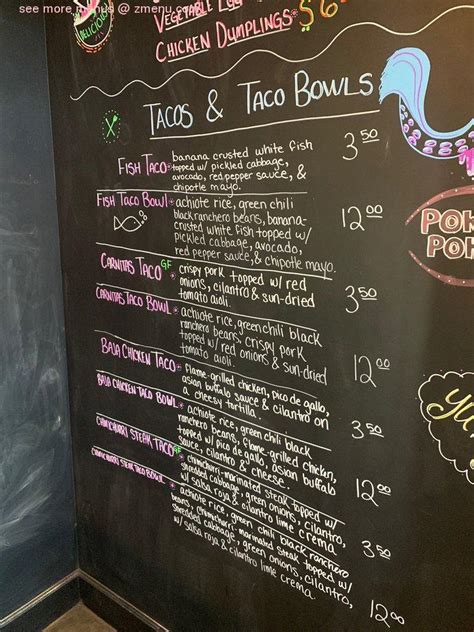 see more menus @ zmenu.com
DELICIOUS
VEGETABLE EGG
CHICKEN DUMPLINGS $6
TACOS & TACO BOWLS
FISH TACO banana crusted white fish 3.50
topped w/ pickled cabbage,
avocado, red pepper sauce, &
chipotle mayo.
FISH TACO BOWL achiote rice, green chili 12.00
black ranchero beans, banana-
crusted white fish topped w/
pickled cabbage, avocado,
red pepper sauce, & chipotle mayo.
CARNITAS TACO GF crispy pork topped w/ red 3.50
onions, cilantro & sun-dried
tomato aioli.
CARNITAS TACO BOWL achiote rice, green chili black 12.00
ranchero beans, crispy pork
topped w/ red onions & sun-dried
tomato aioli.
BAJA CHICKEN TACO flame-grilled chicken, pico de gallo, 3.50
asian buffalo sauce & cilantro on
a cheesy tortilla.
BAJA CHICKEN TACO BOWL achiote rice, green chili black 12.00
ranchero beans, flame-grilled chicken,
topped w/ pico de gallo, asian buffalo
sauce, cilantro & cheese.
CHIMICHURRI STEAK TACO GF chimichurri-marinated steak topped w/ 3.50
shredded cabbage, green onions, cilantro,
w/ salsa roja & cilantro lime crema.
CHIMICHURRI STEAK TACO BOWL achiote rice, green chili black ranchero 12.00
beans, chimichurri-marinated steak topped w/
shredded cabbage, green onions, cilantro,
w/ salsa roja & cilantro lime crema.